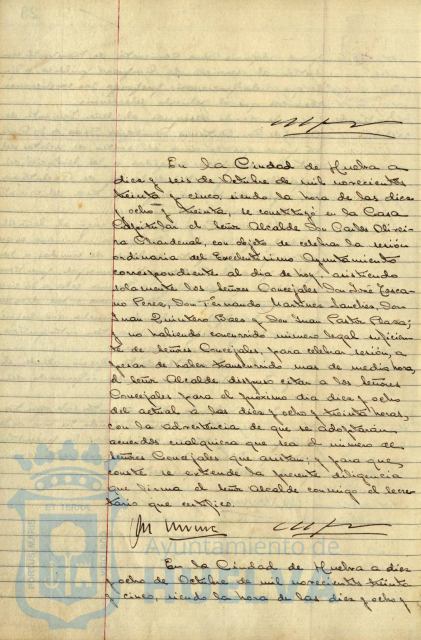 En la Ciudad de Huelva a
diez y seis de Octubre de mil novecientos
treinta y cinco, siendo la hora de las diez
y ocho y treinta, se constituyó en la Casa
Capitular el Señor Alcalde Don Carlos Oliveira
Chardenal, con objeto de celebrar la sesión
ordinaria del Excelentísimo Ayuntamiento
correspondiente al día de hoy; asistiendo
solamente los Señores Concejales Don José Toscano
Perez, Don Fernando Martinez Sanchez, Don
Juan Quintero Baez y Don Juan Pastor
y no habiendo concurrido número legal suficiente
de Señores Concejales, para celebrar sesión, a
pesar de haber transcurrido mas de media hora,
el Señor Alcalde dispuso citar a los Señores
Concejales para el próximo dia diez y ocho
del actual a las diez y ocho y treinta horas,
con la advertencia de que se adoptarán
acuerdos cualquiera que sea el número de
Señores Concejales que asistan; y para que
conste se extiende la presente diligencia
que firma el Señor Alcalde conmigo el Secretario
que certifico.
Ayuntamiento de
En la Ciudad de Huelva a diez
y ocho de Octubre de mil novecientos treinta
y cinco, siendo la hora de las diez y ocho y